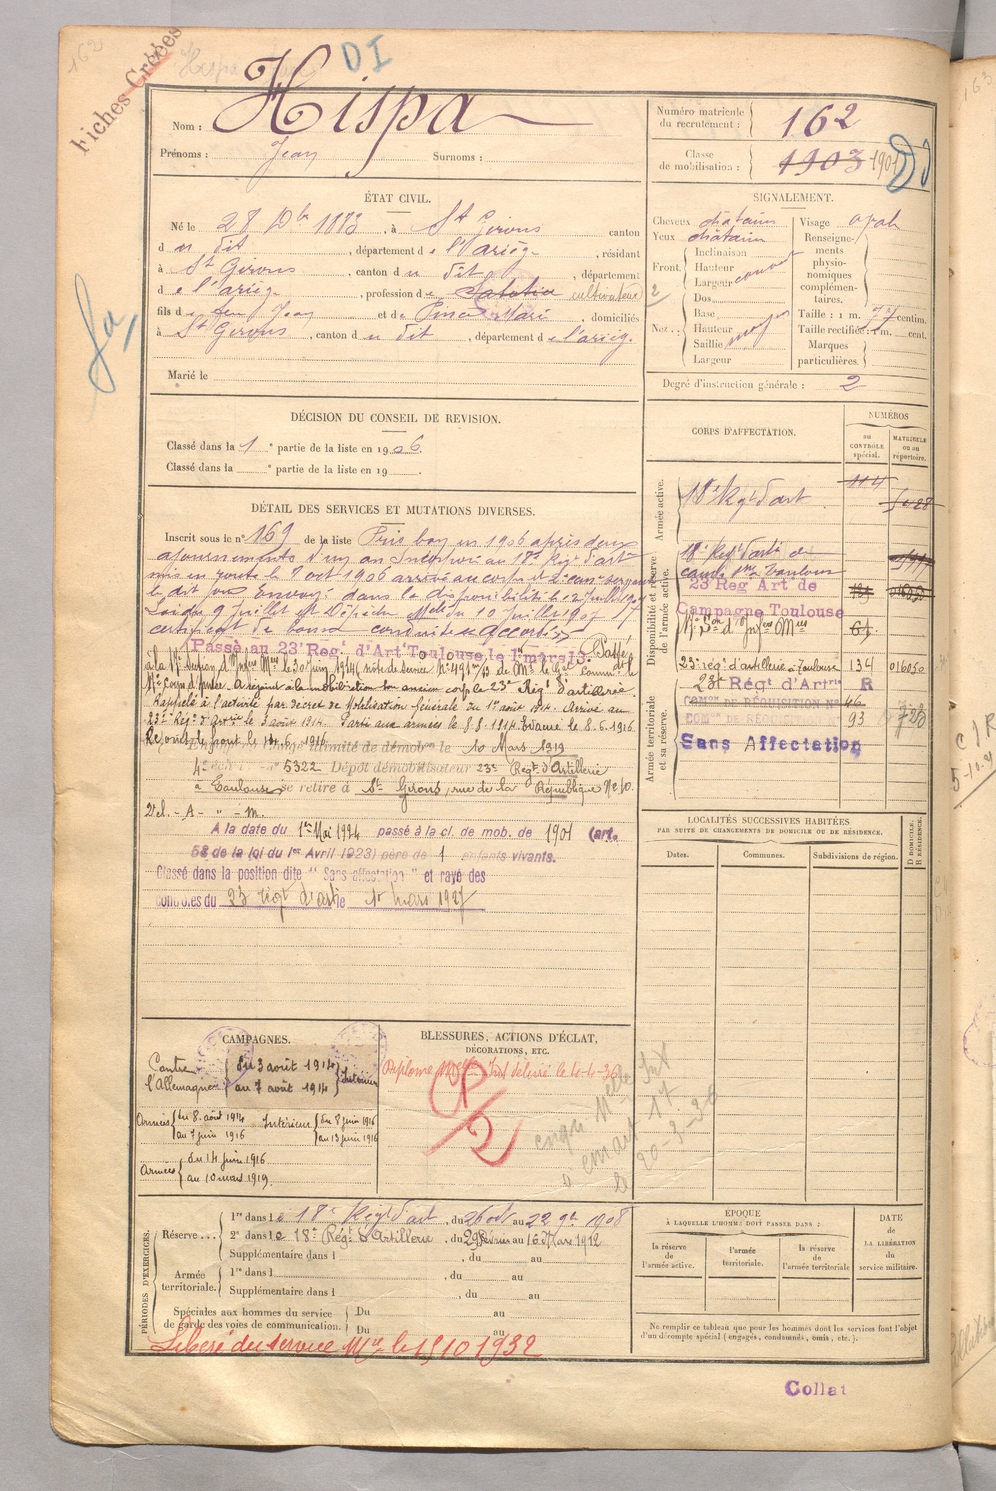 162
Fiches Créées
DI
Nom : Hispa
Prénoms : Jean Surnoms :
Numéro matricule du recrutement : 162
Classe de mobilisation : 1903 1901
ÉTAT CIVIL.
Né le 28 Dbre 1883, à St Girons canton
d u dit, département de l'Ariège, résidant
à St Girons, canton du dit, département
de l'Ariège, profession de cultivateur
fils de Jean et de Marie, domiciliés
à St Girons, canton du dit, département de l'Ariège.
Marié le
SIGNALEMENT.
Cheveux châtains
Yeux châtains
Front. Inclinaison
Hauteur
Largeur couvert
Nez. Dos
Base
Hauteur
Saillie moyen
Largeur
Visage oval
Renseignements physionomiques complémentaires.
Taille : 1 m. 77 centim.
Taille rectifiée : 1 m. cent.
Marques particulières.
Degré d'instruction générale : 2
DÉCISION DU CONSEIL DE REVISION.
Classé dans la 1 e partie de la liste en 1906.
Classé dans la e partie de la liste en 19 .
DÉTAIL DES SERVICES ET MUTATIONS DIVERSES.
Inscrit sous le n° 169 de la liste Pris bon en 1906 après deux
ajournements d'un an Incorporé au 18e Régt d'artie
mis en route le 7 oct 1906 arrivé au corps et 2e can. servant
le dit jour Envoyé dans la disponibilité le 12 Juillet 1907
Loi du 9 Juillet et Dépêche Melle du 10 Juillet 1907
certificat de bonne conduite accordé
Passé au 23e Reg. d'Art Toulouse le 1er mai 13. Passé
à la 17e section d'Infrs Mres le 30 juin 1914 (note de service N° 491 m/13 de Mr le Gal Command. le
17e Corps d'Armée. A rejoint à la mobilisation son ancien corps le 23e Régt d'artillerie.
Rappelé à l'activité par décret de Mobilisation Générale du 1er août 1914. Arrivé au
23e Régt d'Artie le 3 août 1914. Parti aux armées le 8.8.1914. Evacué le 8.6.1916
Rejoint le front le 14.6.1916.
illimité de démobon le 10 Mars 1919
4e échon n° 5322 Dépôt démobilisateur 23e Régt d'Artillerie
à Toulouse se retire à St Girons, rue de la République N° 40.
Vel. - A - " - M.
A la date du 1er Mai 1924 passé à la cl. de mob. de 1901 (art.
58 de la loi du 1er Avril 1923) père de 1 enfants vivants.
Classé dans la position dite "Sans affectation" et rayé des
contrôles du 23 régt d'artie le 1er mars 1927
CORPS D'AFFECTATION.
NUMÉROS
au CONTRÔLE spécial.
MATRICULE ou au répertoire.
Armée active.
18e Régt d'art
Disponibilité et réserve de l'armée active.
18e Régt d'artie de
23 Reg Art de
Campagne Toulouse
17e Son d'Infrs Mres 64
23e régt d'artillerie à Toulouse 134 016050
23e Régt d'Artrie R
Armée territoriale et sa réserve.
COMon DE RÉQUISITION N° 46
COMon DE RÉQUISITION N° 93
Sans Affectation
LOCALITÉS SUCCESSIVES HABITÉES
PAR SUITE DE CHANGEMENTS DE DOMICILE OU DE RÉSIDENCE.
Dates. Communes. Subdivisions de région. D DOMICILE. R RÉSIDENCE.
CAMPAGNES.
Contre l'Allemagne du 3 août 1914 au 7 août 1914 Intérieur
Armées du 8 août 1914 au 7 juin 1916 Intérieur du 8 juin 1916 au 13 juin 1916
Armées du 14 juin 1916 au 10 mars 1919.
BLESSURES, ACTIONS D'ÉCLAT,
DÉCORATIONS, ETC.
Diplôme Melle Int délivré le 4-4-36
20-3-36
PÉRIODES D'EXERCICES.
Réserve... 1re dans le 18e Régt d'art, du 26 oct au 22 9bre 1908
2e dans le 18e Régt d'Artillerie, du 29 Février au 16 Mars 1912
Supplémentaire dans l , du au
Armée territoriale. 1re dans l , du au
Supplémentaire dans l , du au
Spéciales aux hommes du service de garde des voies de communication. Du au
Du au
Libéré du service Mre le 15 10 1932
ÉPOQUE
À LAQUELLE L'HOMME DOIT PASSER DANS :
la réserve de l'armée active.
l'armée territoriale.
la réserve de l'armée territoriale
DATE de LA LIBÉRATION du service militaire.
Ne remplir ce tableau que pour les hommes dont les services font l'objet
d'un décompte spécial (engagés, condamnés, omis, etc.).
Collat